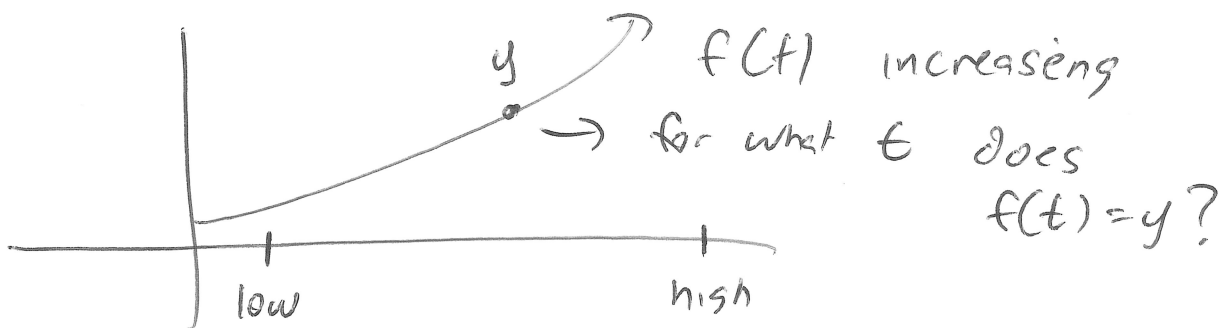 y
f(t) increasing
→ for what t does
f(t) = y?
low
high